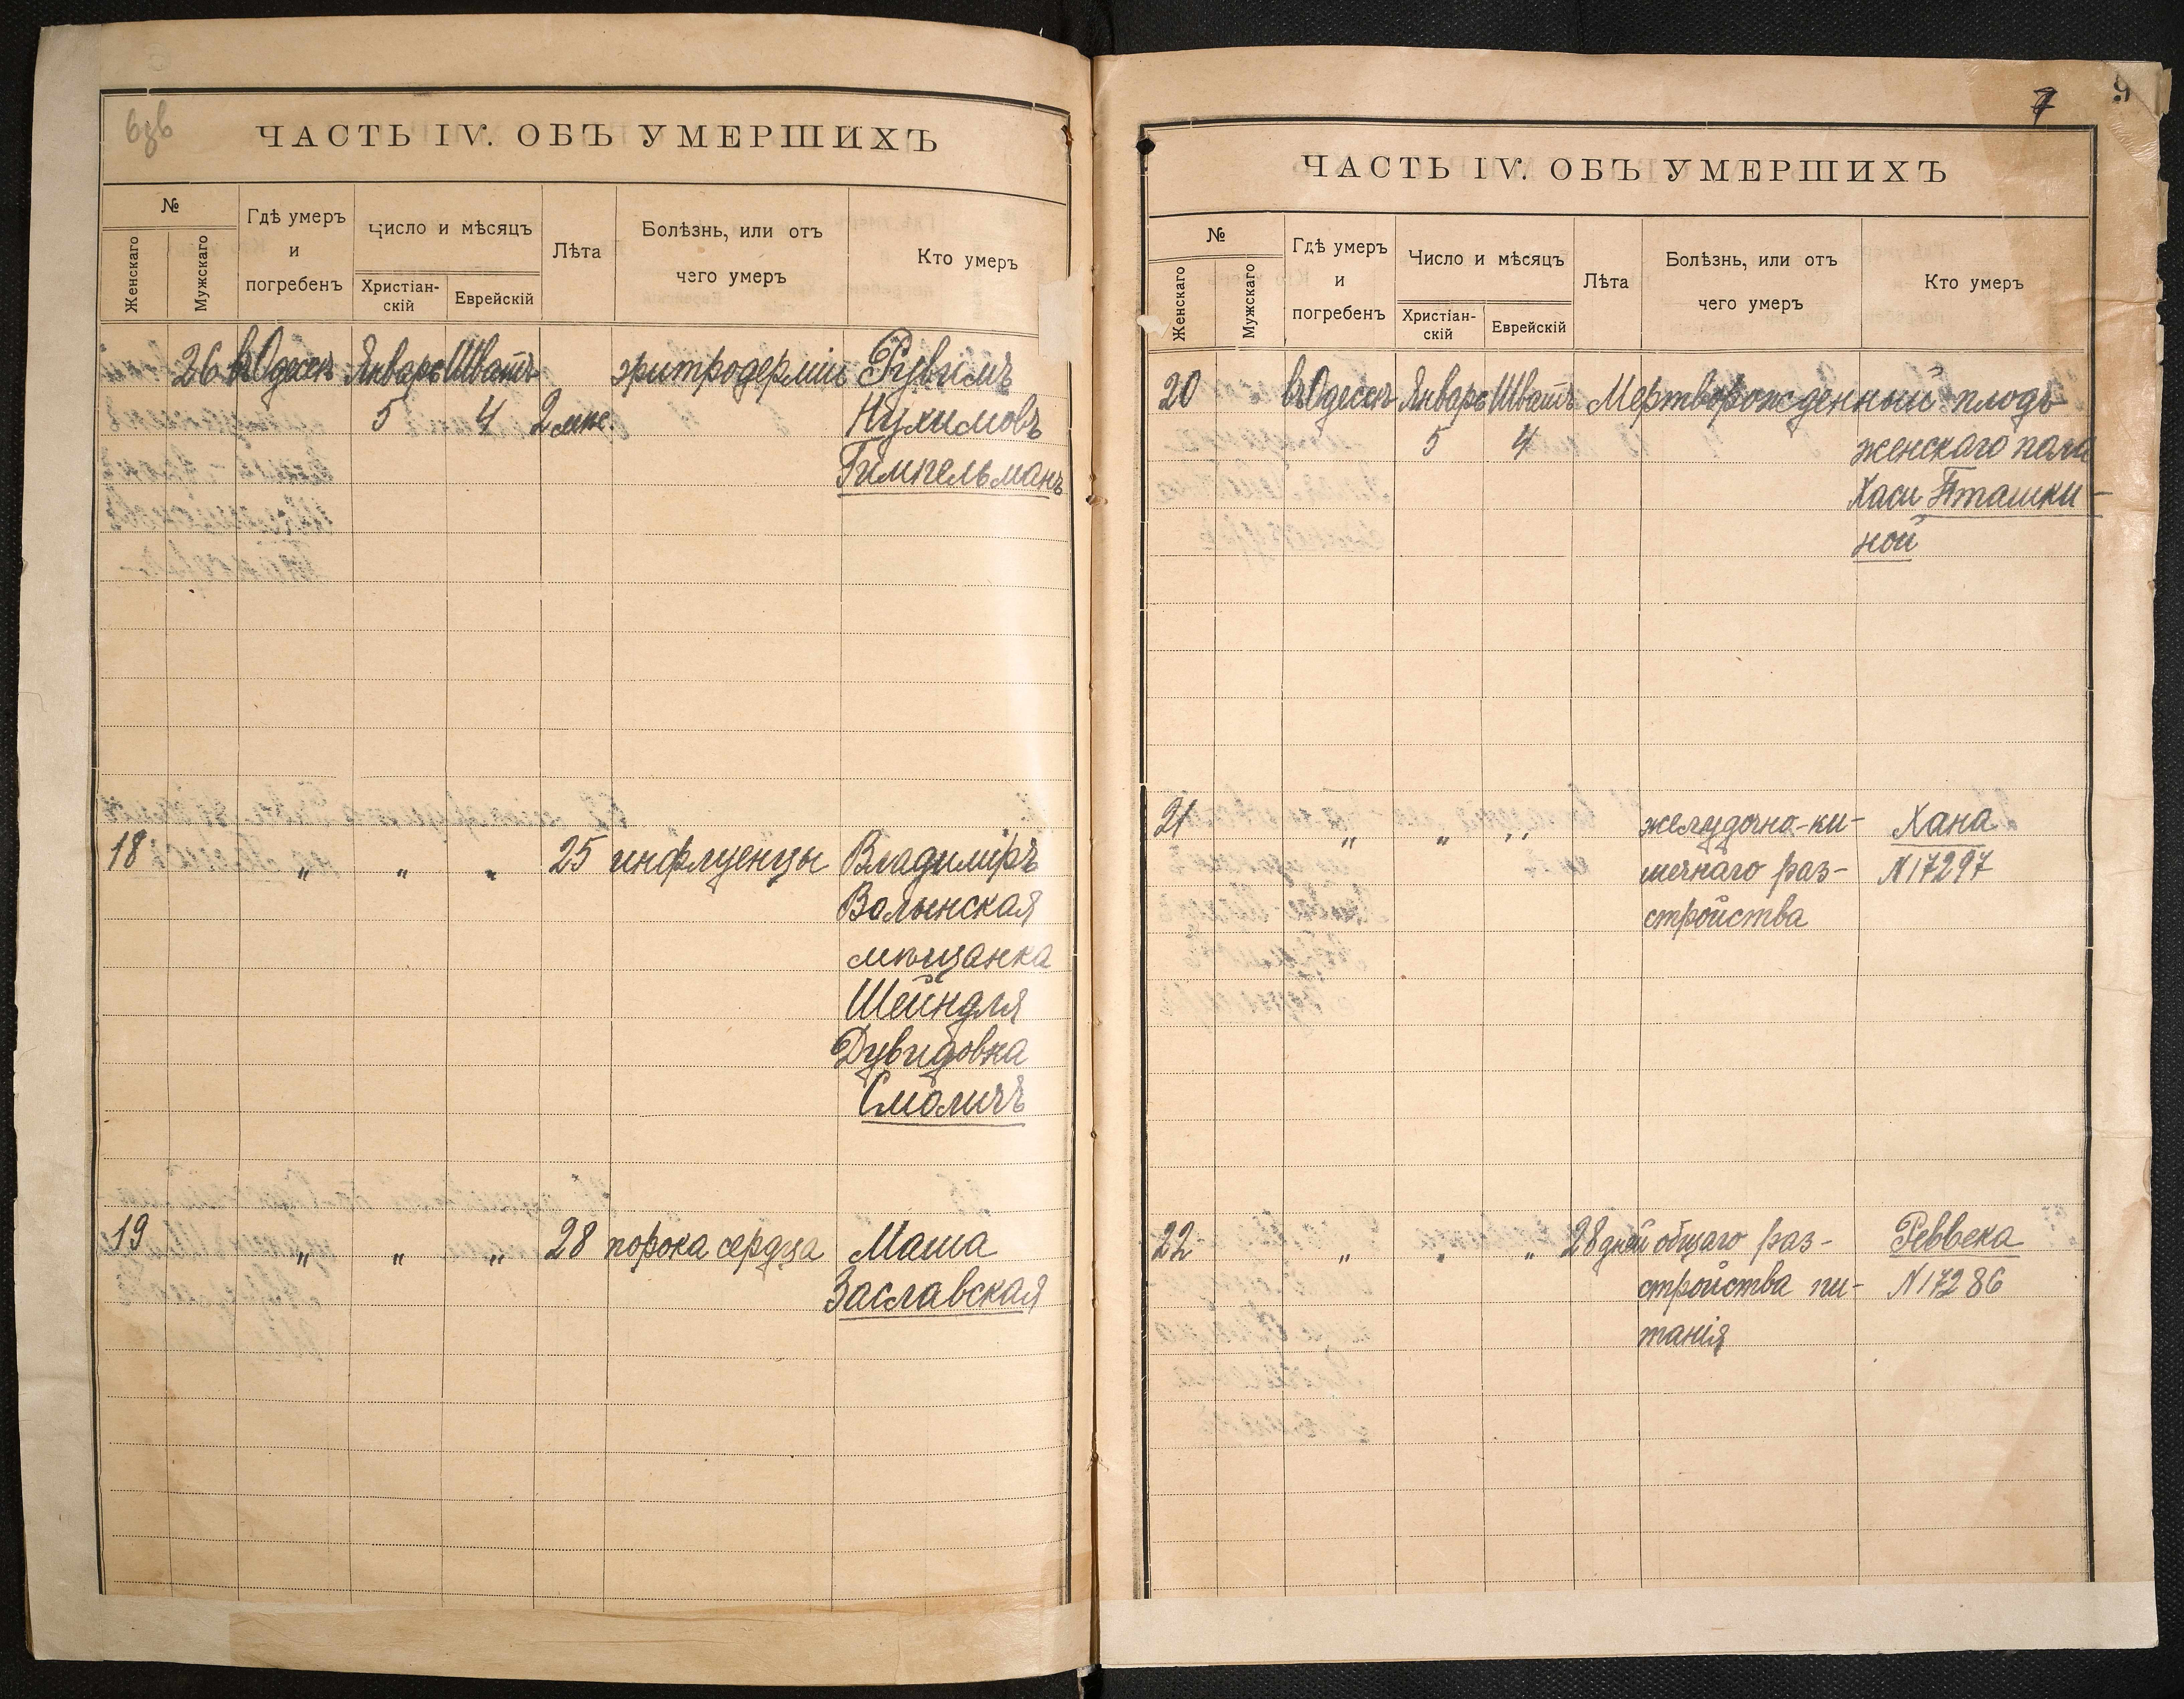 6зв
ЧАСТЬ IV. ОБЪ УМЕРШИХЪ
№
Женскаго
Мужскаго
Гдѣ умеръ
и
погребенъ
Число и мѣсяцъ
Христіан-
скій
Еврейскій
Лѣта
Болѣзнь, или отъ
чего умеръ
Кто умеръ
26 въ Одессѣ Январь Шватъ эритродерміи Рувимъ
5 4 2 мѣс. Нухимовъ
Гимпельманъ
18 " " " 25 инфлуенцы Владимiръ
Волынская
мѣщанка
Шейндля
Дувидовна
Смоличъ
19 " " " 28 порока сердца Маша
Заславская
7
9
ЧАСТЬ IV. ОБЪ УМЕРШИХЪ
№
Женскаго
Мужскаго
Гдѣ умеръ
и
погребенъ
Число и мѣсяцъ
Христіан-
скій
Еврейскій
Лѣта
Болѣзнь, или отъ
чего умеръ
Кто умеръ
20 въ Одессѣ Январь Шватъ Мертворожденный плодъ
5 4 женскаго пола
Хаси Пташки-
ной
21 " " " желудочно-ки- Хана
шечнаго раз- N 17297
стройства
22 " " " 28 дней общаго раз- Реввека
стройства пи- N 17286
танія